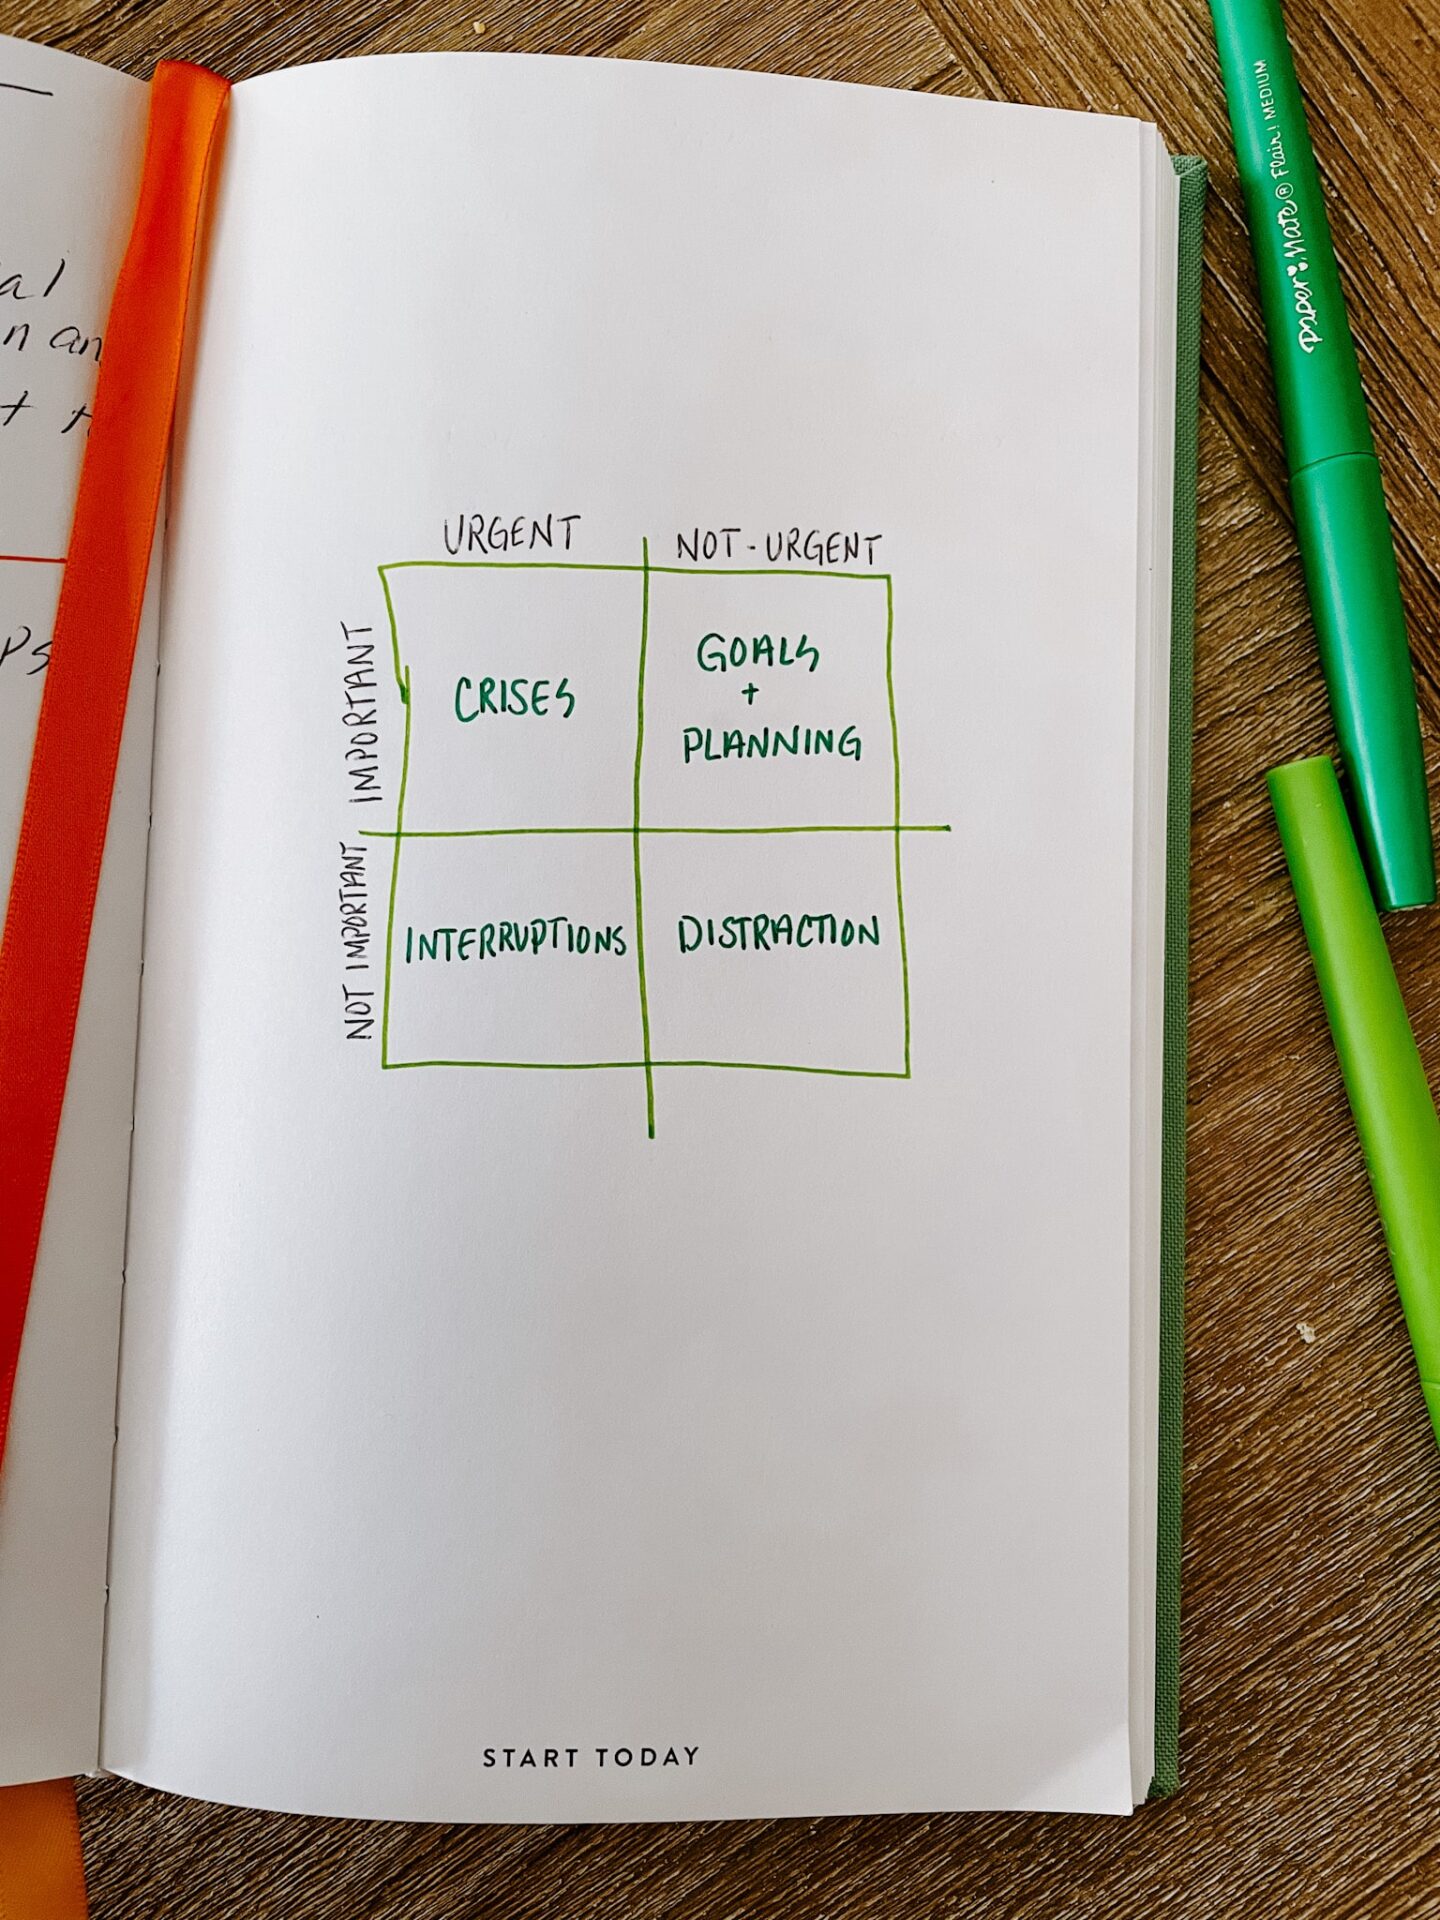 al
n an
ps
URGENT
NOT-URGENT
IMPORTANT
CRISES
GOALS
+
PLANNING
NOT IMPORTANT
INTERRUPTIONS
DISTRACTION
START TODAY
paper Mate® Flair! MEDIUM